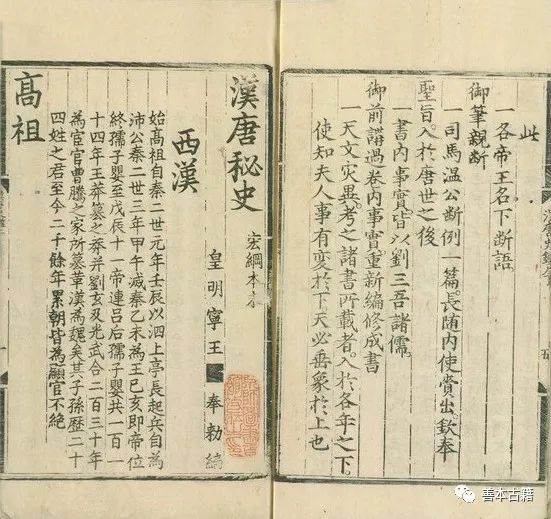 此
一各帝王名下断語
御筆親断
一司馬温公断例一篇長随内使賫出欽奉
聖旨入於唐世之後
一書内事實皆以劉三吾諸儒
御前講過卷内事實重新編修成書
一天文灾異考之諸書所載者入於各年之下
使知夫人事有変於下天必垂象於上也
漢唐秘史
宏綱本末
皇明寧王
奉勅編
西漢
始高祖自秦二世元年壬辰以泗上亭長起兵自為
沛公秦二世三年甲午滅秦乙未為王已亥即帝位
終孺子嬰至戊辰十一帝連吕后孺子嬰共一百一
十四年王莽簒之莽并劉玄及光武合二百三十年
為宦官曹騰之家所簒華漢為魏矣其子孫歴二十
四姓之君至今二千餘年累朝皆為顯官不絶
高祖
善本古籍